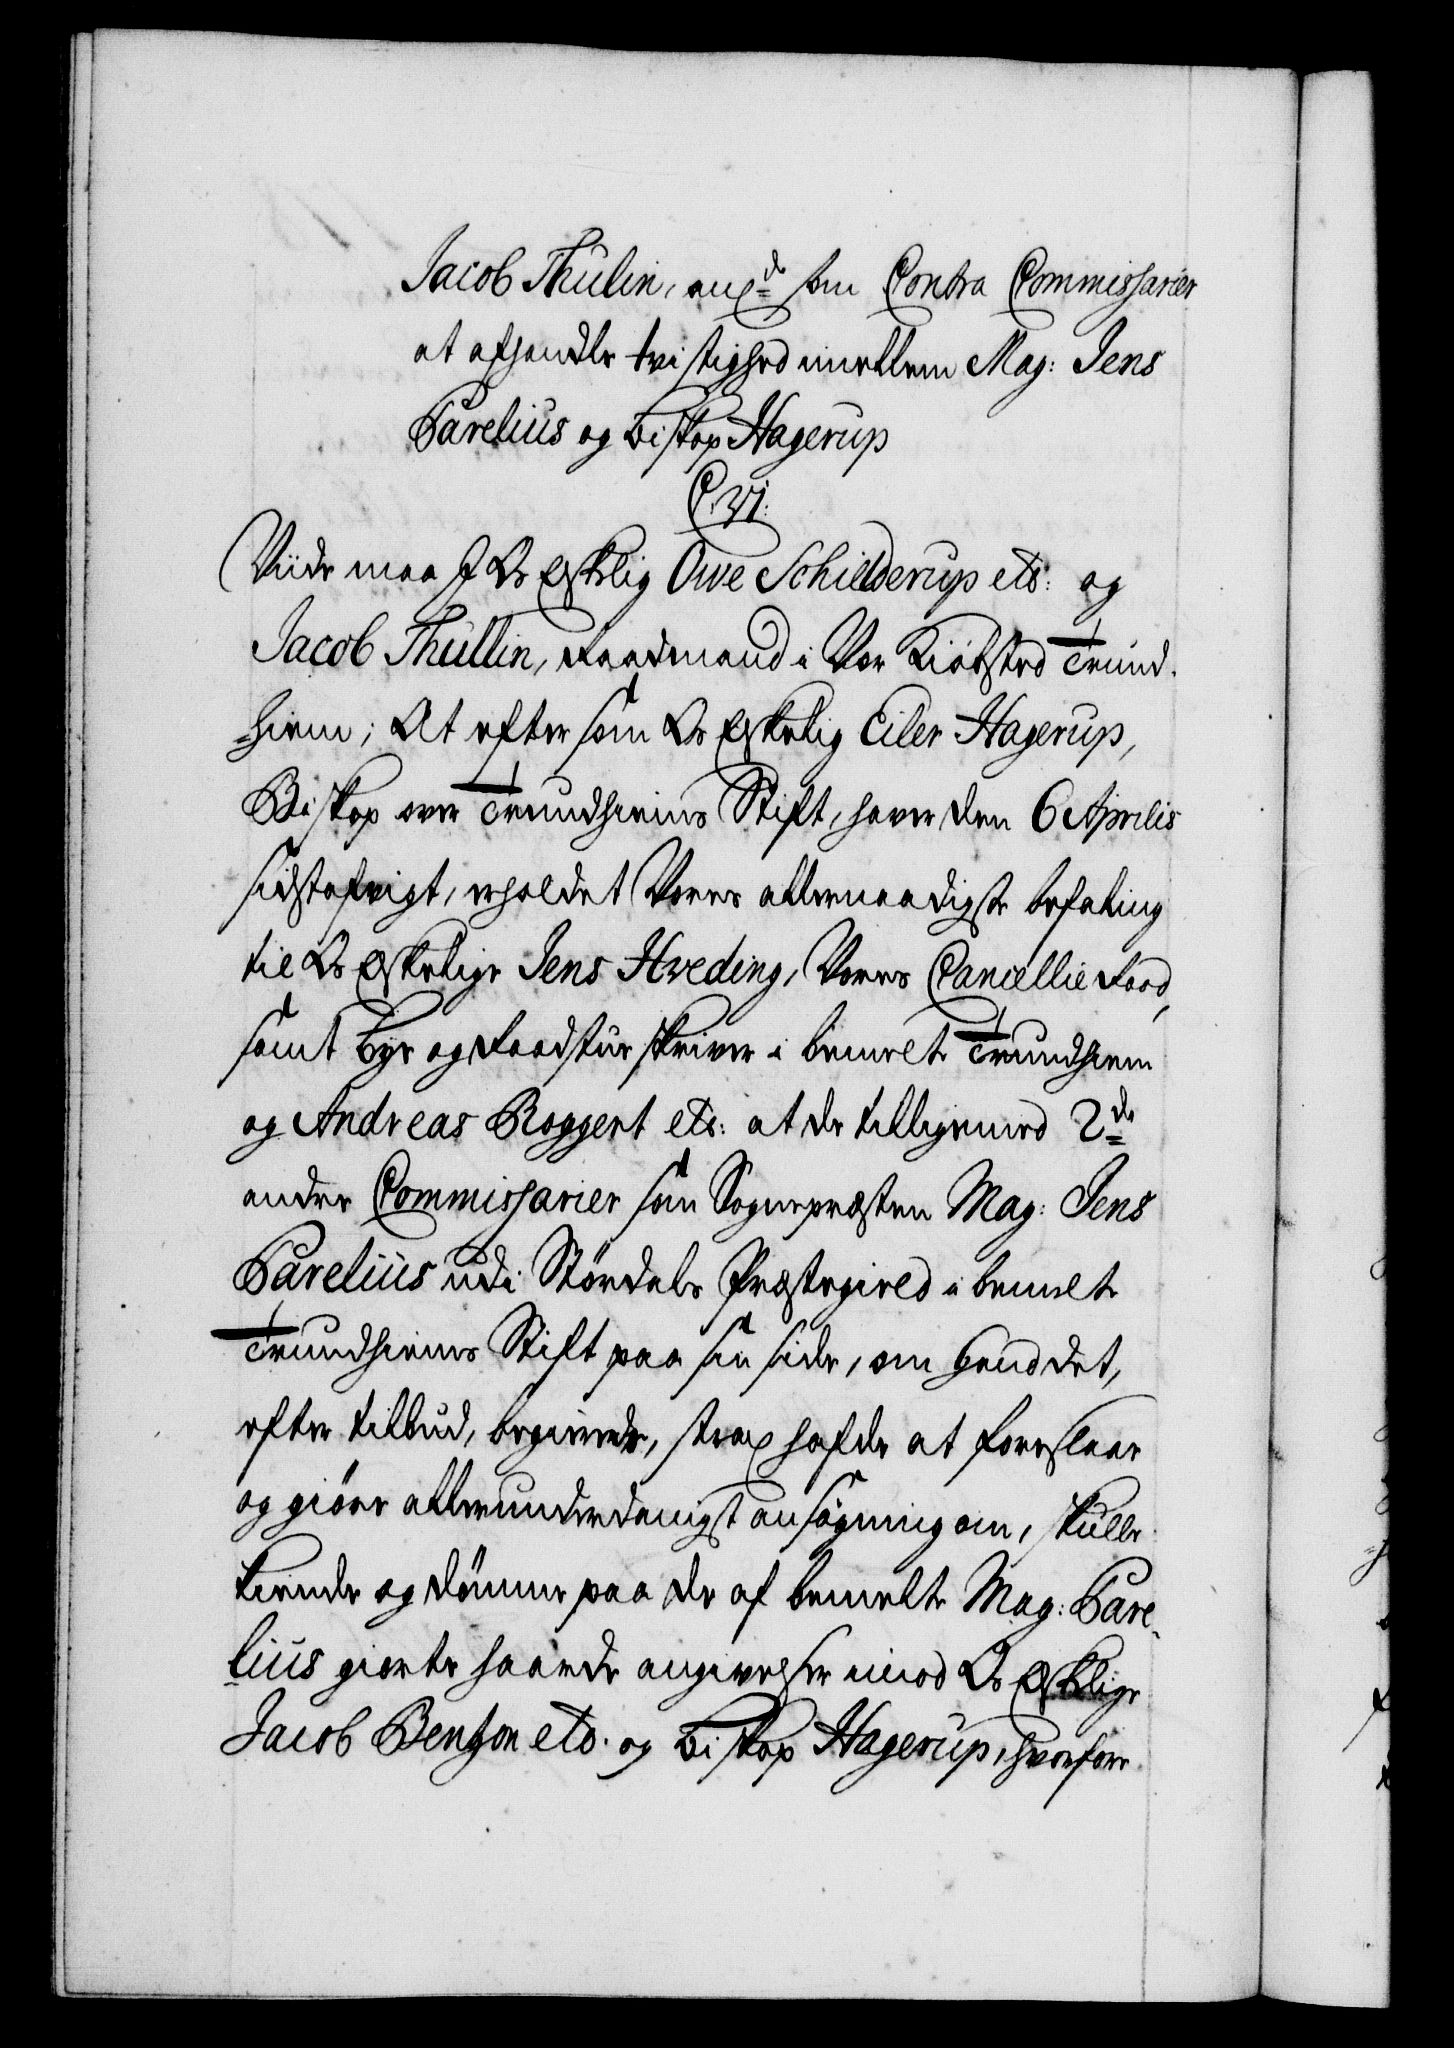 Jacob Thulin, ang:de som Contra Commissarier
at afhandle tvistighed imellem Mag: Jens
Parelius og Biskop Hagerup
C. VI:
Viide maa I Os Elskelig Owe Schielderup etc: og
Jacob Thullin, Raadmand i Vor Kiöbsted Trund-
hiem; At eftersom Os Elskelig Eiler Hagerup,
Biskop over Trundhiems Stift, haver den 6 Aprilis
sidstafvigt, erholdet Vores allernaadigste befaling
til Os Elskelige Jens Hveding, Vores Cancellie Raad,
samt Bye og Raadstue skriver i bemelte Trundhiem
og Andreas Boggert etc: at de tilligemed 2de
andre Commissarier som Sognepræsten Mag: Jens
Parelius udi Stördals Præstegield i bemelte
Trundhiems Stift paa sin side, om hand det,
efter tilbud, begierede, strax hafde at foreslaae
og giöre allerunderdanigst ansögning om, skulle
kiende og dömme paa de af bemelte Mag: Pare-
lius giorte haarde angivelser imod Os Elskelige
Jacob Benzon etc. og Biskop Hagerup, hvorfore